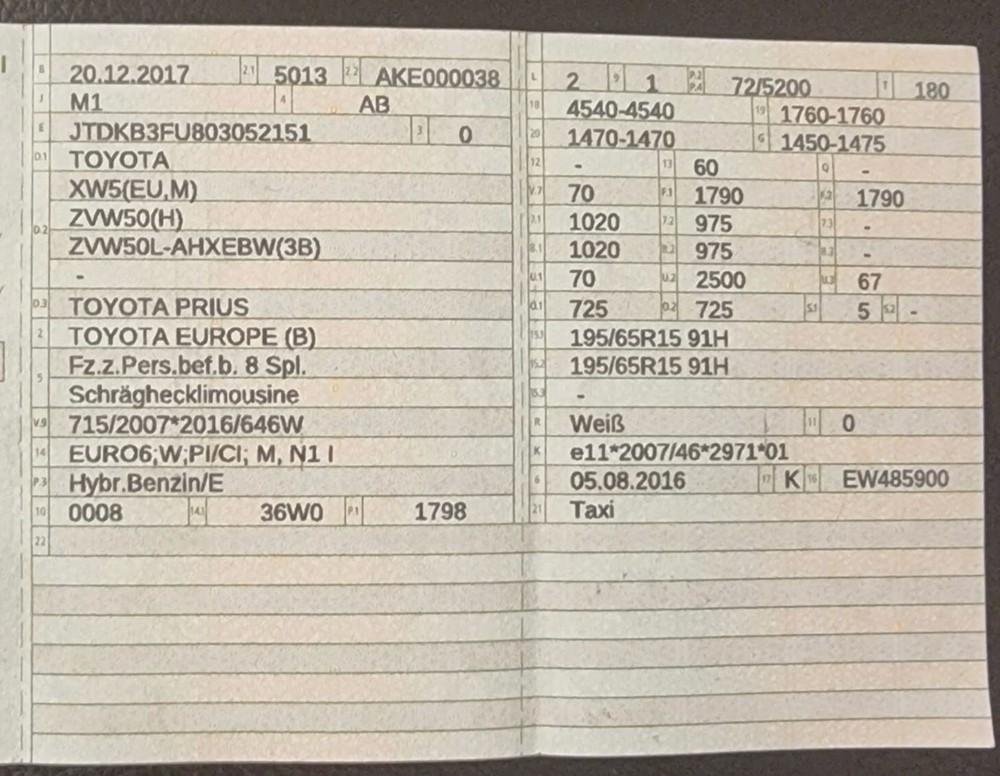 B 20.12.2017 2.1 5013 2.2 AKE000038
J M1 4 AB
E JTDKB3FU803052151 3 0
D.1 TOYOTA
XW5(EU,M)
D.2 ZVW50(H)
ZVW50L-AHXEBW(3B)
-
D.3 TOYOTA PRIUS
2 TOYOTA EUROPE (B)
5 Fz.z.Pers.bef.b. 8 Spl.
Schräghecklimousine
V.9 715/2007*2016/646W
14 EURO6;W;PI/CI; M, N1 I
P.3 Hybr.Benzin/E
10 0008 14.1 36W0 P.1 1798
22
L 2 9 1 P.2 P.4 72/5200 T 180
18 4540-4540 19 1760-1760
20 1470-1470 G 1450-1475
12 - 13 60 Q -
V.7 70 F.1 1790 F.2 1790
7.1 1020 7.2 975 7.3 -
8.1 1020 8.2 975 8.3 -
U.1 70 U.2 2500 U.3 67
O.1 725 O.2 725 S.1 5 S.2 -
15.1 195/65R15 91H
15.2 195/65R15 91H
15.3 -
R Weiß 11 0
K e11*2007/46*2971*01
6 05.08.2016 17 K 16 EW485900
21 Taxi